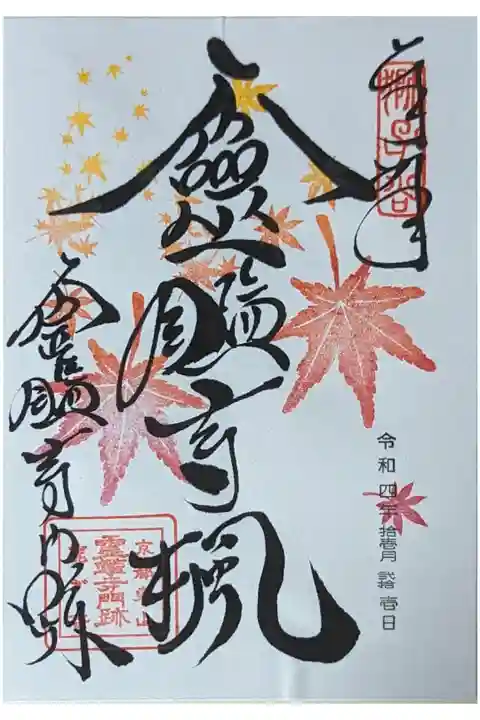 奉拝
靈鑑寺
楓
令和四年拾壹月貳拾壹日
靈鑑寺門跡
京都東山
靈鑑寺門跡